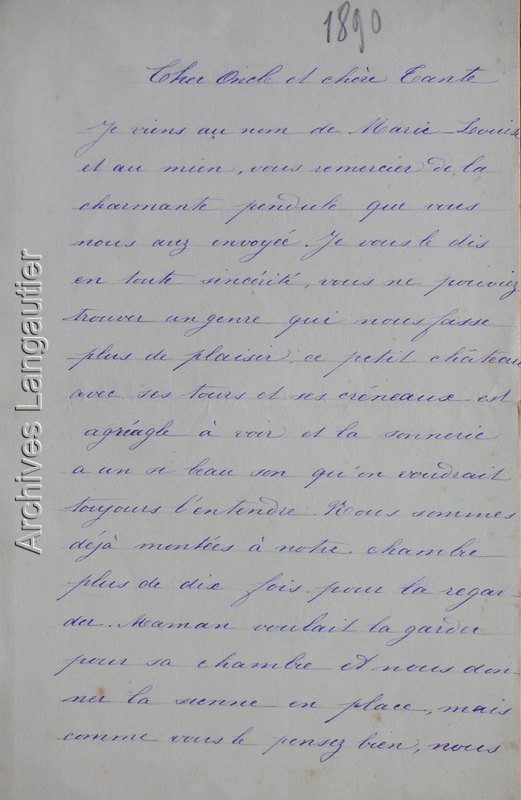 1890
Cher Oncle et chère Tante
Je viens au nom de Marie-Louise
et au mien, vous remercier de la
charmante pendule que vous
nous avez envoyée. Je vous le dis
en toute sincérité, vous ne pouviez
trouver un genre qui nous fasse
plus de plaisir, ce petit château
avec ses tours et ses créneaux est
agréagle à voir et la sonnerie
a un si beau son qu'on voudrait
toujours l'entendre. Nous sommes
déjà montées à notre chambre
plus de dix fois pour la regar-
der. Maman voulait la garder
pour sa chambre et nous don-
ner la sienne en place, mais
comme vous le pensez bien, nous
Archives Langautier